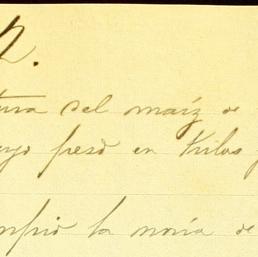 2.
tura del maíz de
uyo peso en Kilos
mpió la noria de